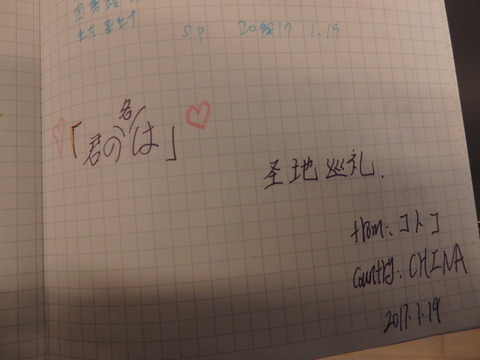 S.P 2017 1.19
「君の名は」♡
圣地巡礼.
from:コトコ
Country:CHINA
2017.1.19